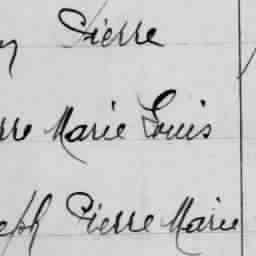 Pierre
rre Marie Louis
eph Pierre Marie